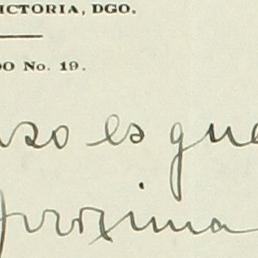 ICTORIA, DGO.
DO No. 19.
uso es que
proxima